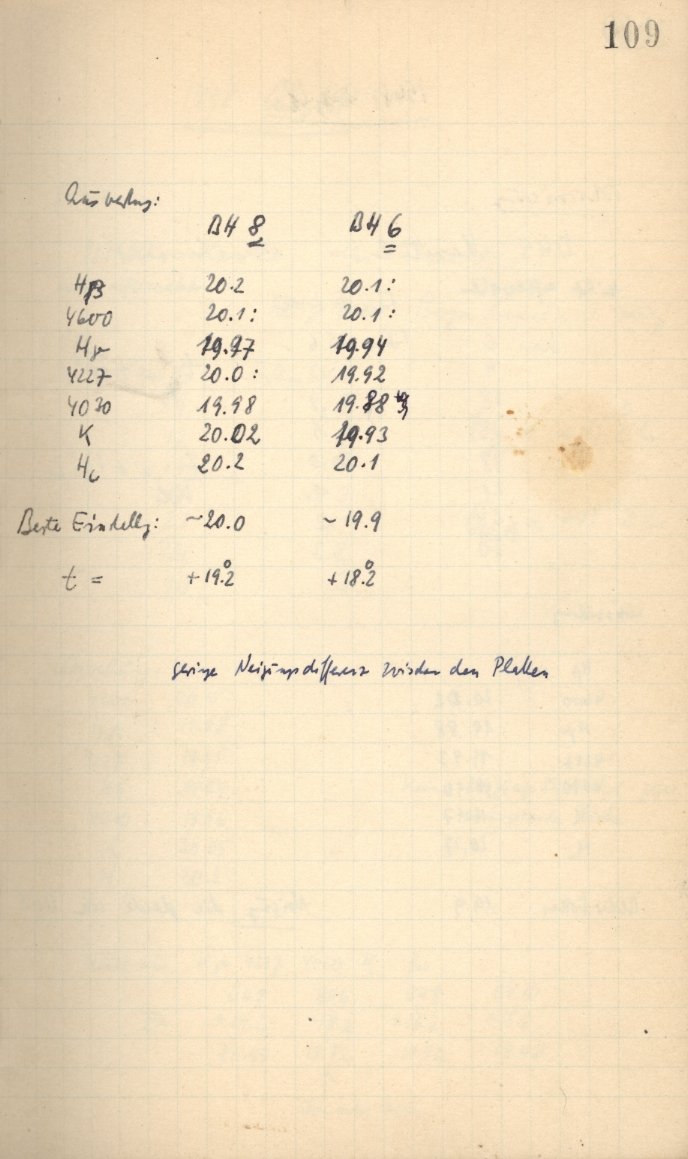 109
Auswertung:
BH 8 BH 6
Hβ 20.2 20.1:
4600 20.1: 20.1:
Hγ 19.97 19.94
4227 20.0: 19.92
4030 19.98 19.88
K 20.02 19.93
20.2 20.1
Beste Einstellg: ~20.0 ~19.9
t = +19°.2 +18°.2
geringe Neigungsdifferenz zwischen den Platten